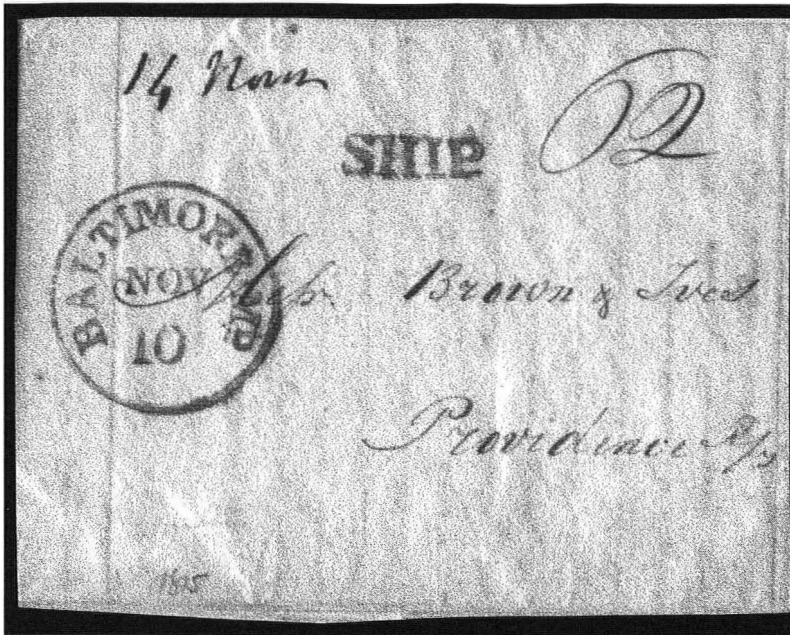 14 Nov
SHIP
62
BALTIMORE MD
NOV
10
Brown & Ives
Providence R/I